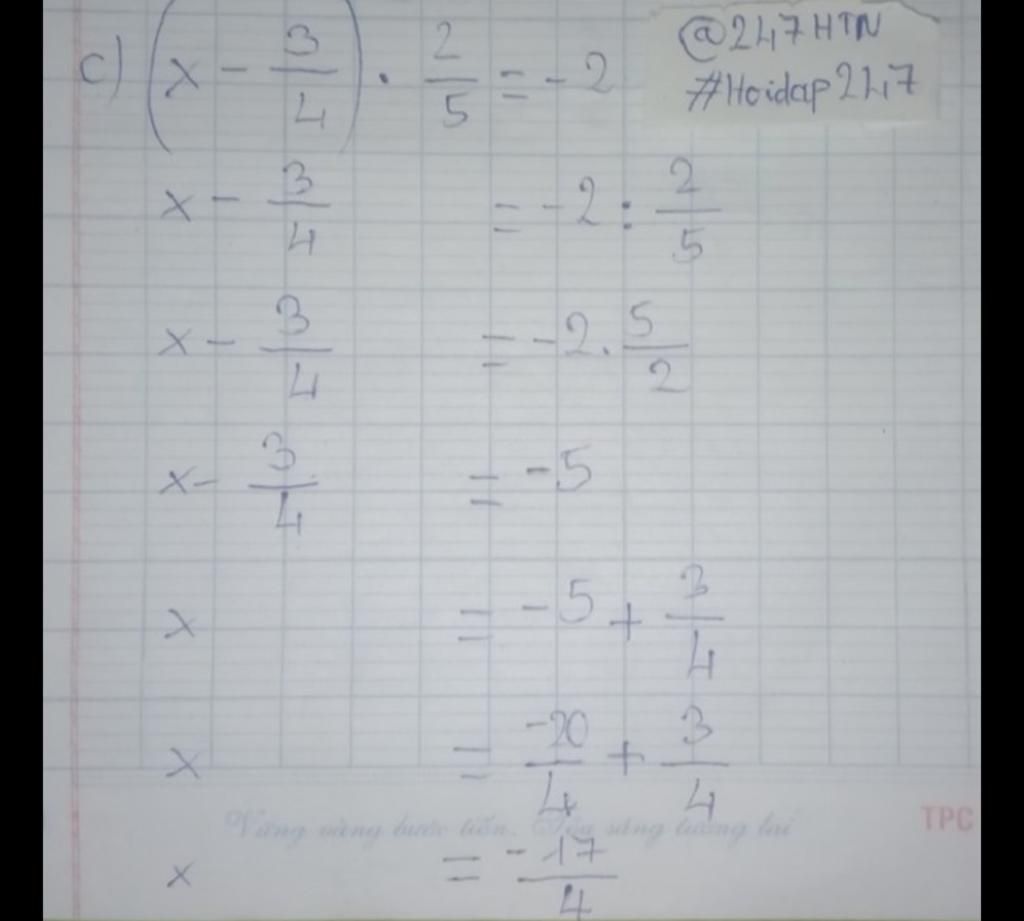 c) (x - 3/4) . 2/5 = -2
@247HTN
#Hoidap247
x - 3/4 = -2 : 2/5
x - 3/4 = -2 . 5/2
x - 3/4 = -5
x = -5 + 3/4
x = -20/4 + 3/4
Vững vàng bước tiến. Tỏa sáng tương lai
TPC
x = -17/4